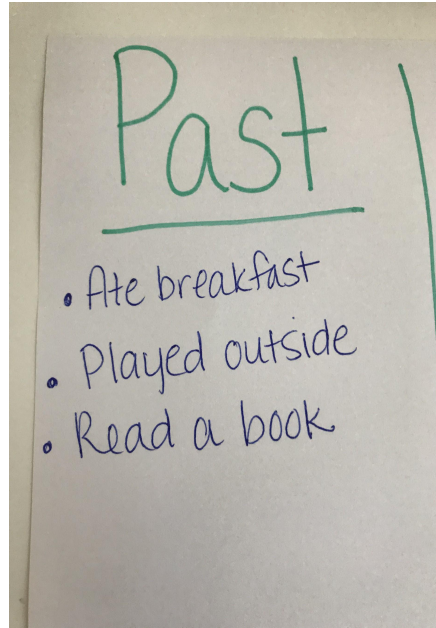 Past
• Ate breakfast
• Played outside
• Read a book